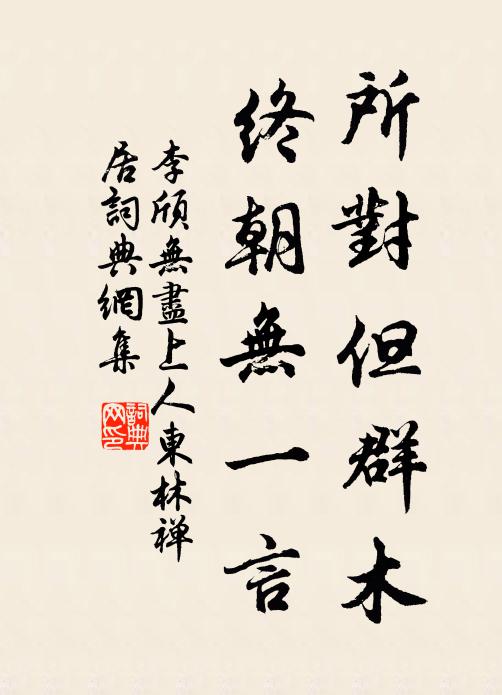 所對但群木
終朝無一言
李頎無盡上人東林禅
居詞典網集
詞典
网印